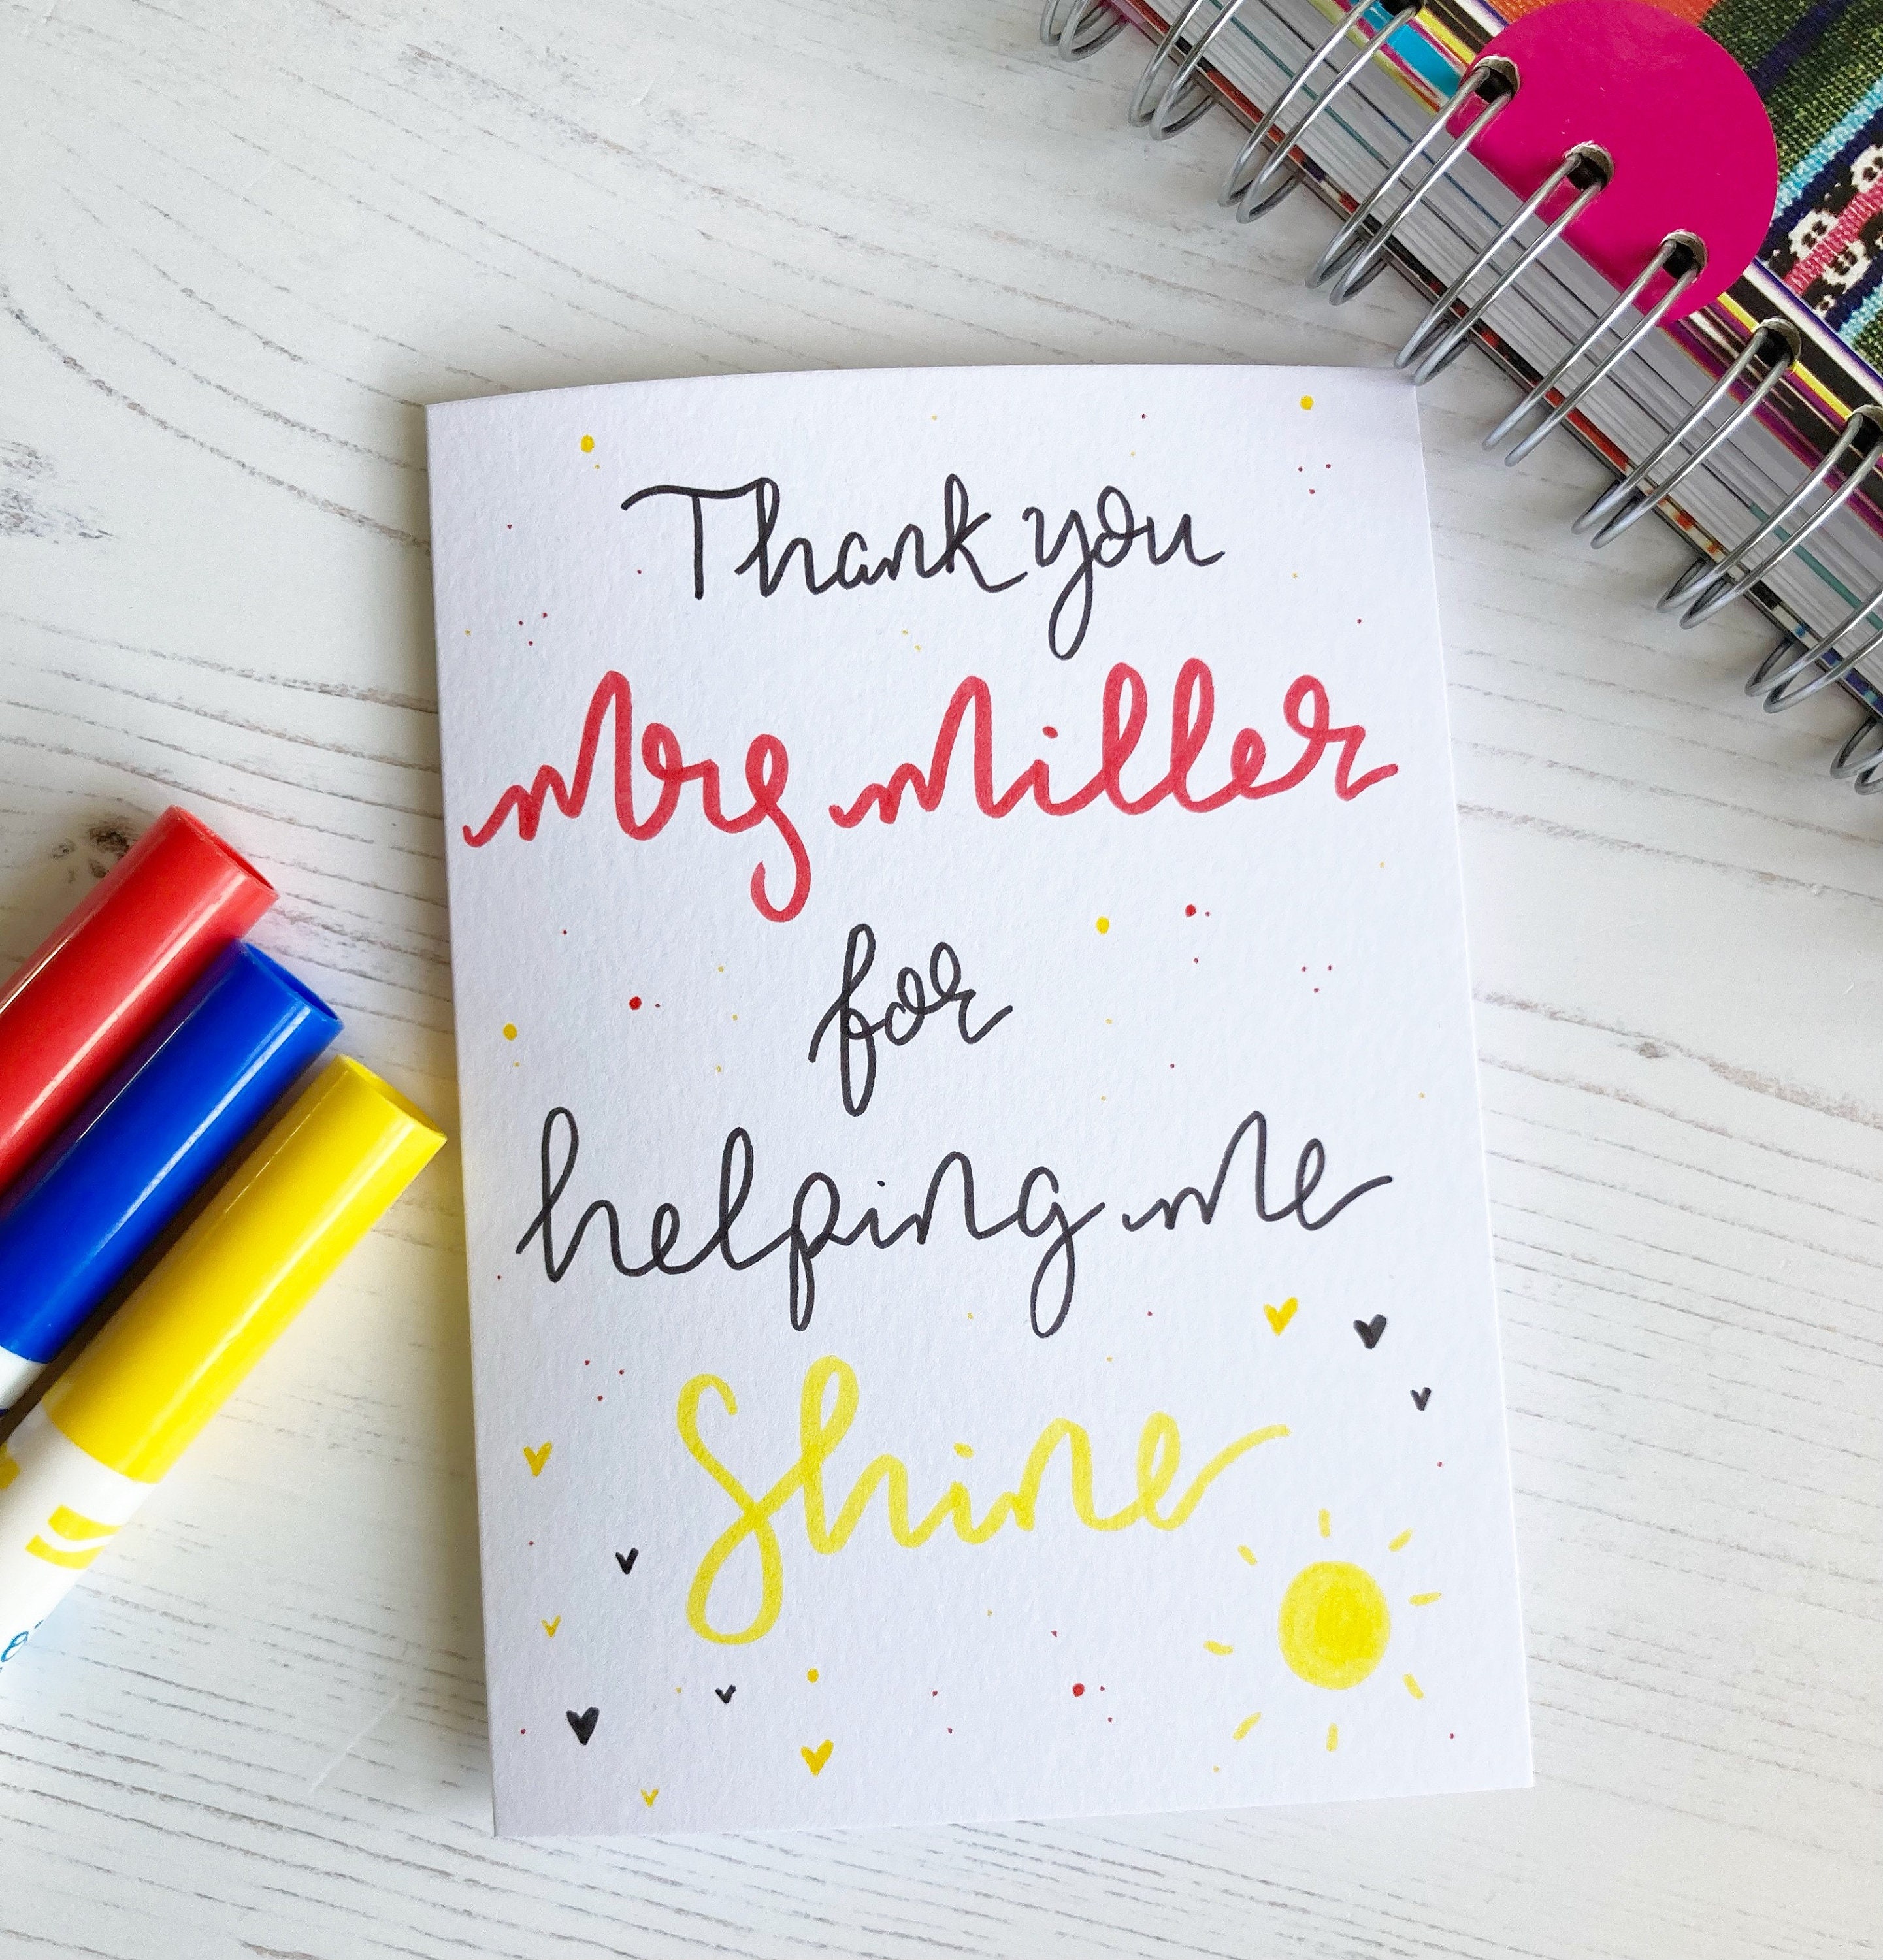 Thank you
Mrs Miller
for
helping me
Shine